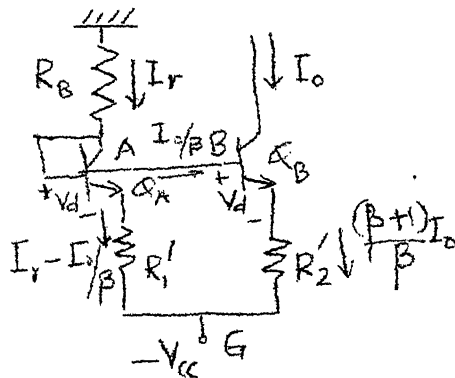 R_B I_r I_o
A I_o/β B
+ V_d - Q_A + V_d - Q_B
I_r - I_o/β R_1' R_2' (β+1)/β I_o
-V_cc G